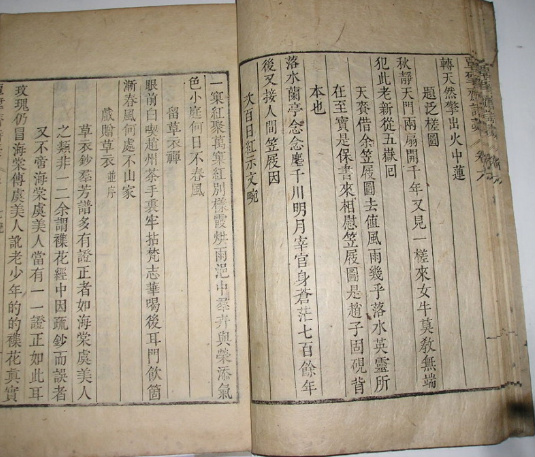 轉天然擎出火中蓮
題泛槎圖
秋靜天門兩扇開千年又見一槎來女牛莫教無端
犯此老新從五嶽回
天賚借余笠屐圖去值風雨幾乎落水英靈所
在至寶是保書來相慰笠屐圖是趙子固硯背
本也
落水蘭亭念念塵千川明月宰官身蒼茫七百餘年
後又接人間笠屐因
次百日紅示文畹
一寀紅聚萬寀紅別樣霞烘雨浥中羣卉與榮添氣
色小庭何日不春風
留草衣禪
眼前白喫趙州茶手裏牢拈梵志華喝後耳門飲箇
漸春風何處不山家
戲貽草衣並序
草衣鈔羣芳譜多有證正者如海棠虞美人
之類非一二余謂襍花經中因疏鈔而誤者
又不啻海棠虞美人當有一一證正如此耳
玫瑰仍冒海棠傳虞美人訛老少年的的襍花真實